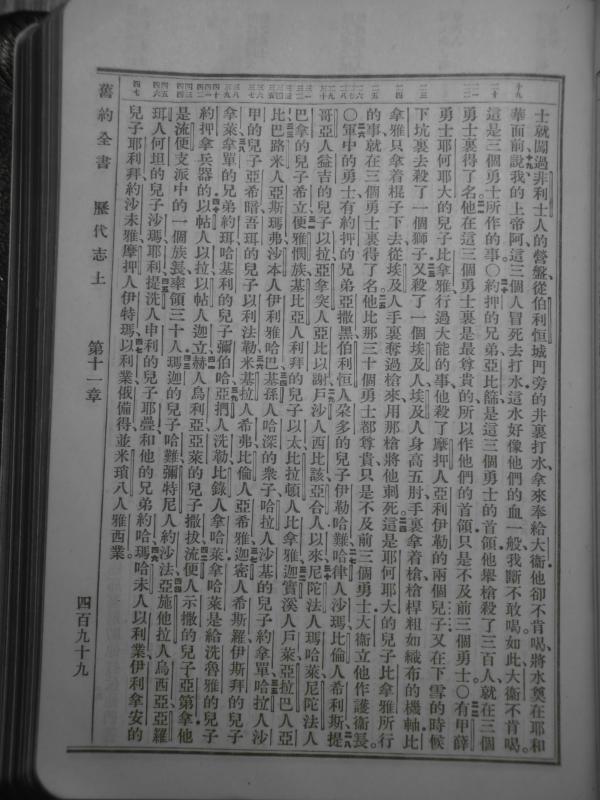 舊約全書　歷代志上　第十一章　四百九十九
士就闖過非利士人的營盤、從伯利恒城門旁的井裏打水、拿來奉給大衛、他卻不肯喝、將水奠在耶和
華面前、說、我的上帝阿、這三個人冒死去打水、這水好像他們的血一般、我斷不敢喝、如此、大衛不肯喝。
這是三個勇士所作的事。○約押的兄弟亞比篩是這三個勇士的首領、他舉槍殺了三百人、就在三個
勇士裏得了名。他在這三個勇士裏是最尊貴的、所以作他們的首領、只是不及前三個勇士。○有甲薛
勇士耶何耶大的兒子比拿雅行過大能的事、他殺了摩押人亞利伊勒的兩個兒子、又在下雪的時候
下坑裏去、殺了一個獅子。又殺了一個埃及人、埃及人身高五肘、手裏拿着槍、槍桿粗如織布的機軸、比
拿雅只拿着棍子下去、從埃及人手裏奪過槍來、用那槍將他刺死。這是耶何耶大的兒子比拿雅所行
的事、就在三個勇士裏得了名。他比那三十個勇士都尊貴、只是不及前三個勇士。大衛立他作護衛長。
○軍中的勇士有約押的兄弟亞撒黑、伯利恒人朶多的兒子伊勒哈難、哈律人沙瑪、比倫人希利斯、提
哥亞人益吉的兒子以拉、亞拿突人亞比以謝、戶沙人西比該、亞合人以來、尼陀法人瑪哈萊、尼陀法人
巴拿的兒子希立、便雅憫族基比亞人利拜的兒子以太、比拉頓人比拿雅、迦實溪人戶萊、亞拉巴人亞
比、巴路米人亞斯瑪弗、沙本人伊利雅哈巴、基孫人哈深的衆子、哈拉人沙基的兒子約拿單、哈拉人沙
甲的兒子亞希暗、吾珥的兒子以利法勒、米基拉人希弗、比倫人亞希雅、迦密人希斯羅、伊斯拜的兒子
拿萊、拿單的兄弟約珥、哈基利的兒子彌伯哈、亞捫人洗勒、比錄人拿哈萊、拿哈萊是給洗魯雅的兒子
約押拿兵器的、以帖人以拉、以帖人迦立、赫人烏利亞、亞萊的兒子撒拔、流便人示撒的兒子亞第拿、他
是流便支派中的一個族長、率領三十人、瑪迦的兒子哈難、彌特尼人約沙法、亞施他拉人烏西亞、亞羅
珥人何坦的兒子沙瑪、耶利、提洗人申利的兒子耶疊、和他的兄弟約哈、瑪哈未人以利業、伊利拿安的
兒子耶利拜、約沙未雅、摩押人伊特瑪、以利業、俄備得、並米瑣八人雅西業。